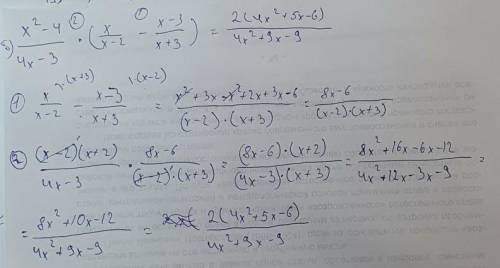 б) \frac{x^2-4}{4x-3} \overset{②}{\cdot} \left(\frac{x}{x-2} \overset{①}{-} \frac{x-3}{x+3}\right) = \frac{2(4x^2+5x-6)}{4x^2+9x-9}
① \frac{x}{x-2}^{\cdot(x+3)} - \frac{x-3}{x+3}^{1\cdot(x-2)} = \frac{x^2+3x-x^2+2x+3x-6}{(x-2)\cdot(x+3)} = \frac{8x-6}{(x-2)\cdot(x+3)}
② \frac{(x-2)(x+2)}{4x-3} \cdot \frac{8x-6}{(x-2)\cdot(x+3)} = \frac{(8x-6)\cdot(x+2)}{(4x-3)\cdot(x+3)} = \frac{8x^2+16x-6x-12}{4x^2+12x-3x-9} =
= \frac{8x^2+10x-12}{4x^2+9x-9} = \frac{2(4x^2+5x-6)}{4x^2+9x-9}